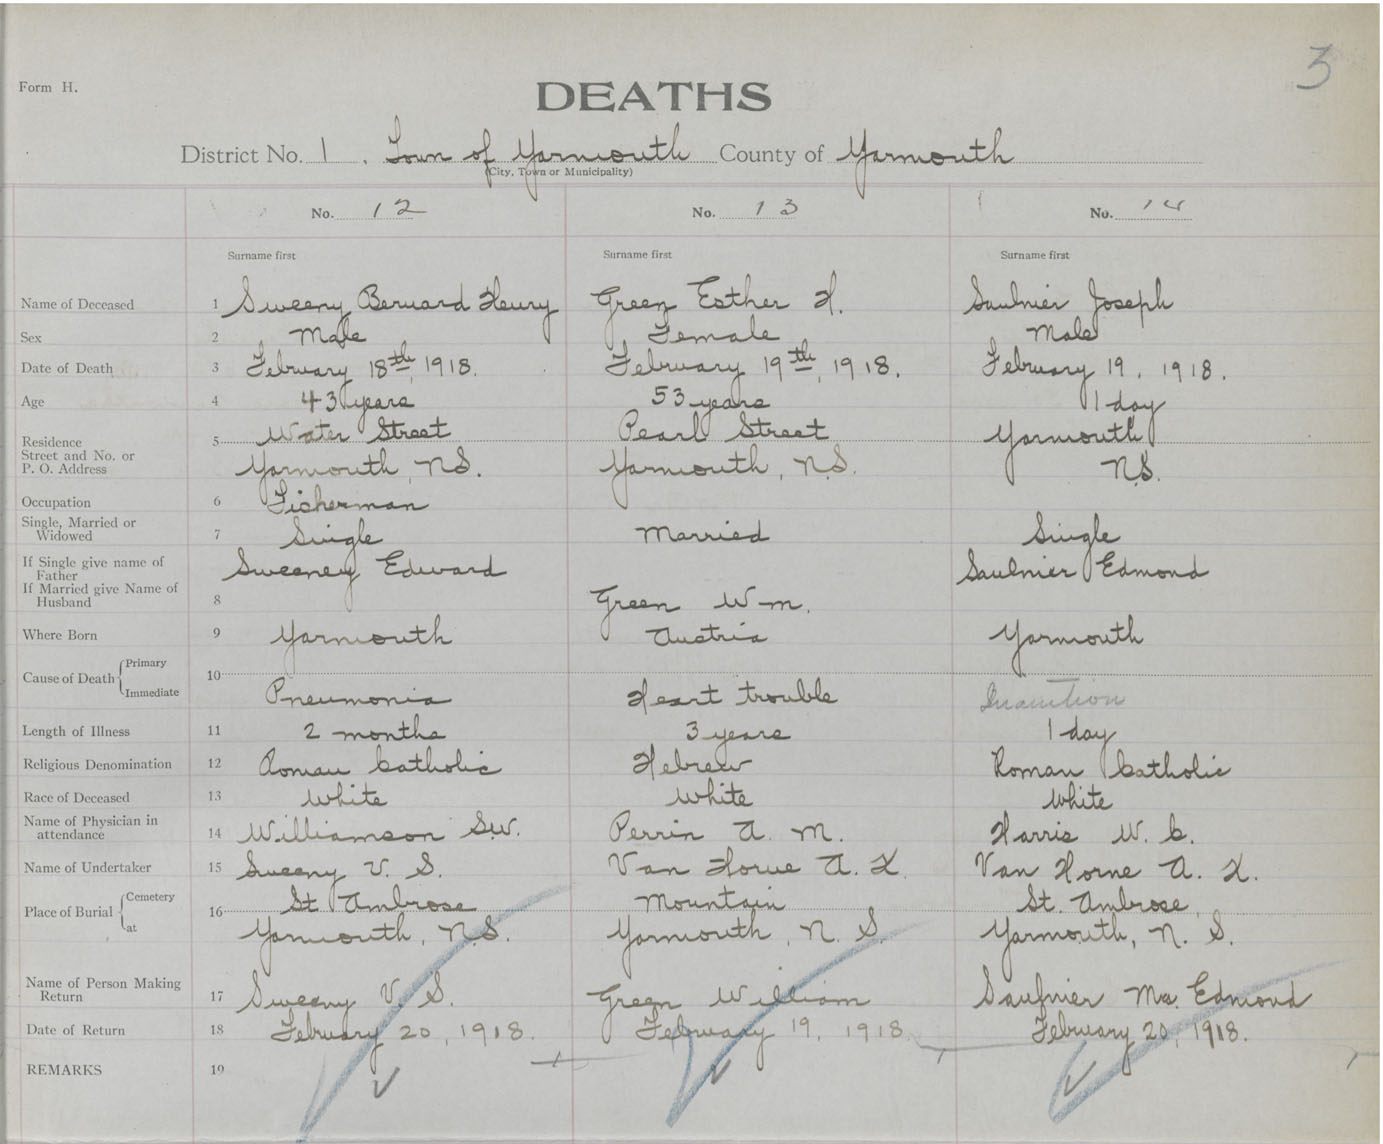 3
Form H.
DEATHS
District No. 1. Town of Yarmouth County of Yarmouth
(City, Town or Municipality)
No. 12 No. 13 No. 14
Surname first Surname first Surname first
Name of Deceased 1 Sweeny Bernard Henry Green Esther H. Saulnier Joseph
Sex 2 Male Female Male
Date of Death 3 February 18th, 1918. February 19th, 1918. February 19, 1918.
Age 4 43 years 53 years 1 day
Residence 5 Water Street Pearl Street Yarmouth
Street and No. or
P. O. Address Yarmouth, N.S. Yarmouth, N.S. N.S.
Occupation 6 Fisherman
Single, Married or
Widowed 7 Single Married Single
If Single give name of
Father Sweeney Edward Saulnier Edmond
If Married give Name of
Husband 8 Green Wm.
Where Born 9 Yarmouth Austria Yarmouth
Cause of Death Primary 10
Immediate Pneumonia Heart trouble Inanition
Length of Illness 11 2 months 3 years 1 day
Religious Denomination 12 Roman Catholic Hebrew Roman Catholic
Race of Deceased 13 White White White
Name of Physician in
attendance 14 Williamson S.W. Perrin A. M. Harris W. C.
Name of Undertaker 15 Sweeny V. S. Van Horne A. K. Van Horne A. K.
Place of Burial Cemetery 16 St. Ambrose Mountain St. Ambrose,
at Yarmouth, N.S. Yarmouth, N. S. Yarmouth, N. S.
Name of Person Making
Return 17 Sweeny V. S. Green William Saulnier Mrs. Edmond
Date of Return 18 February 20, 1918. February 19, 1918. February 20, 1918.
REMARKS 19